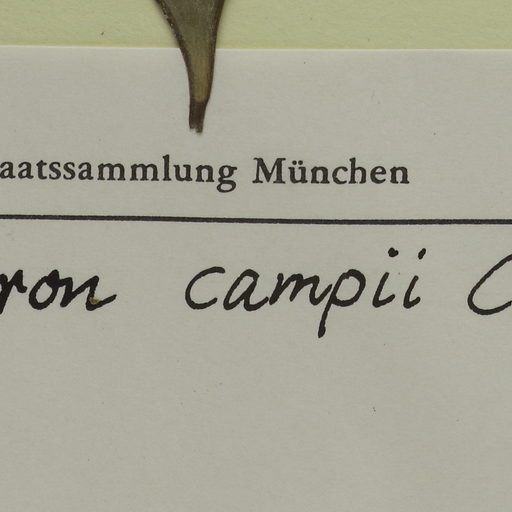 aatssammlung München
ron campii C